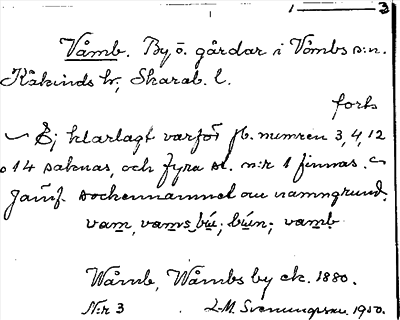 1 — 3
Våmb. By o. gårdar i Våmbs s:n.
Kåkinds hr, Skarab. l.
forts
Ej klarlagt varför jb. numren 3, 4, 12
o 14 saknas, och fyra st. n:r 1 finnas.
Jämf. sockennamnet om namngrund.
vam, vams bú; bún; vamb
Wåmb, Wåmbs by ek. 1880.
N:r 3 L.M. Svenungsson. 1950.